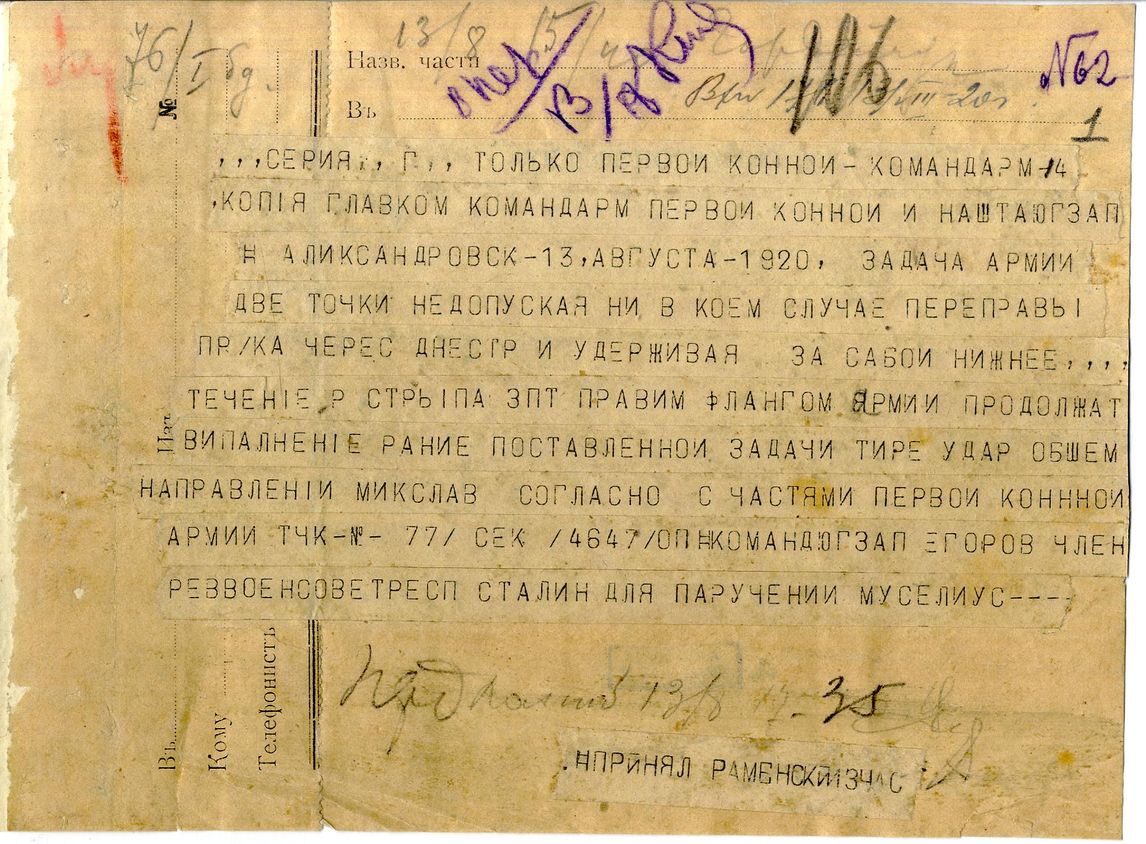 76/I бд.
13/8
№
Назв. части
Въ
№62
1
,,,СЕРИЯ,, Г,, ТОЛЬКО ПЕРВОИ КОННОИ - КОМАНДАРМ-14
,КОПІЯ ГЛАВКОМ КОМАНДАРМ ПЕРВОИ КОННОИ И НАШТАЮГЗАП
Н АЛИКСАНДРОВСК-13,АВГУСТА-1920, ЗАДАЧА АРМИИ
ДВЕ ТОЧКИ НЕДОПУСКАЯ НИ В КОЕМ СЛУЧАЕ ПЕРЕПРАВЫ
ПР/КА ЧЕРЕС ДНЕСТР И УДЕРЖИВАЯ ЗА САБОИ НИЖНЕЕ,,,,
ТЕЧЕНІЕ Р СТРЫПА ЗПТ ПРАВИМ ФЛАНГОМ АРМИИ ПРОДОЛЖАТ
ВИПАЛНЕНІЕ РАНИЕ ПОСТАВЛЕННОИ ЗАДАЧИ ТИРЕ УДАР ОБШЕМ
НАПРАВЛЕНІИ МИКСЛАВ СОГЛАСНО С ЧАСТЯМИ ПЕРВОИ КОНННОИ
АРМИИ ТЧК-№- 77/ СЕК /4647/ОПНКОМАНДЮГЗАП ЕГОРОВ ЧЛЕН
РЕВВОЕНСОВЕТРЕСП СТАЛИН ДЛЯ ПАРУЧЕНИИ МУСЕЛИУС----
Въ
Кому
Телефонистъ
13/8 17-35
.НПРИНЯЛ РАМЕНСКИ13ЧАС